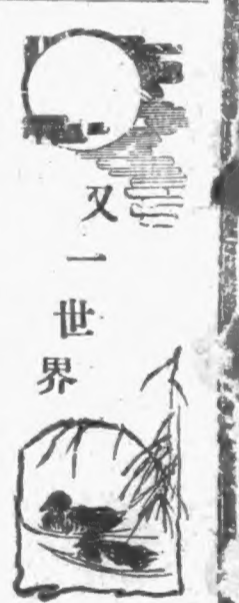 又一世界